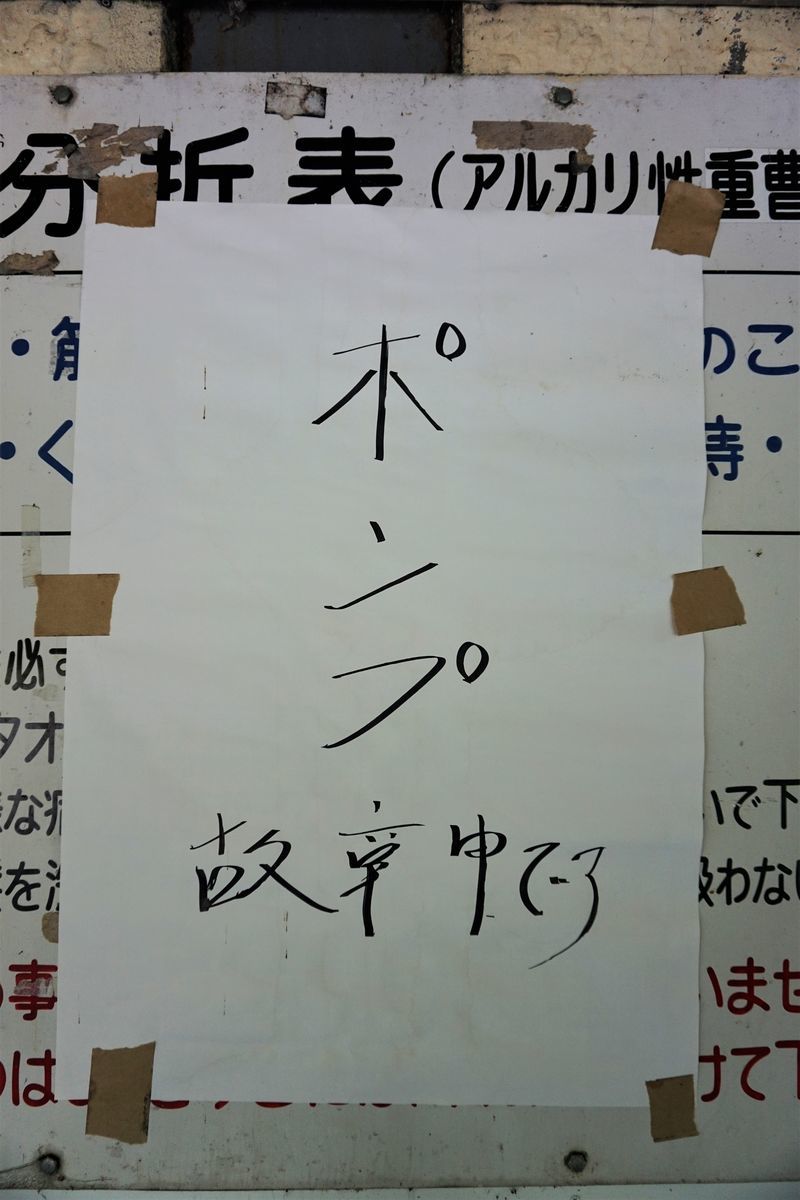 分析表(アルカリ性重曹
のこ
・く
痔・
ポンプ
故章中です
必ず
タオ
な
いで下
を
わない
事
いませ
のは
けて下